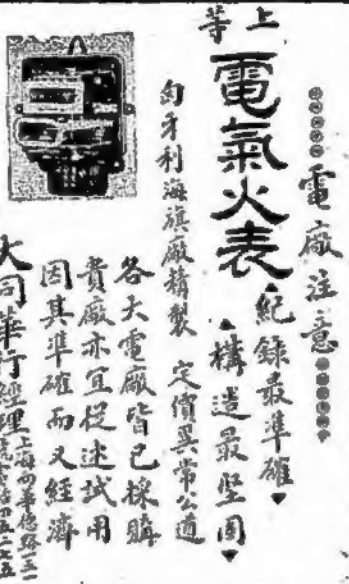 電廠注意
上等
電氣火表
紀錄最準確
構造最堅固
匈牙利海旗廠精製 定價異常公道
各大電廠皆已採購
貴廠亦宜從速試用
因其準確而又經濟
大同華行經理